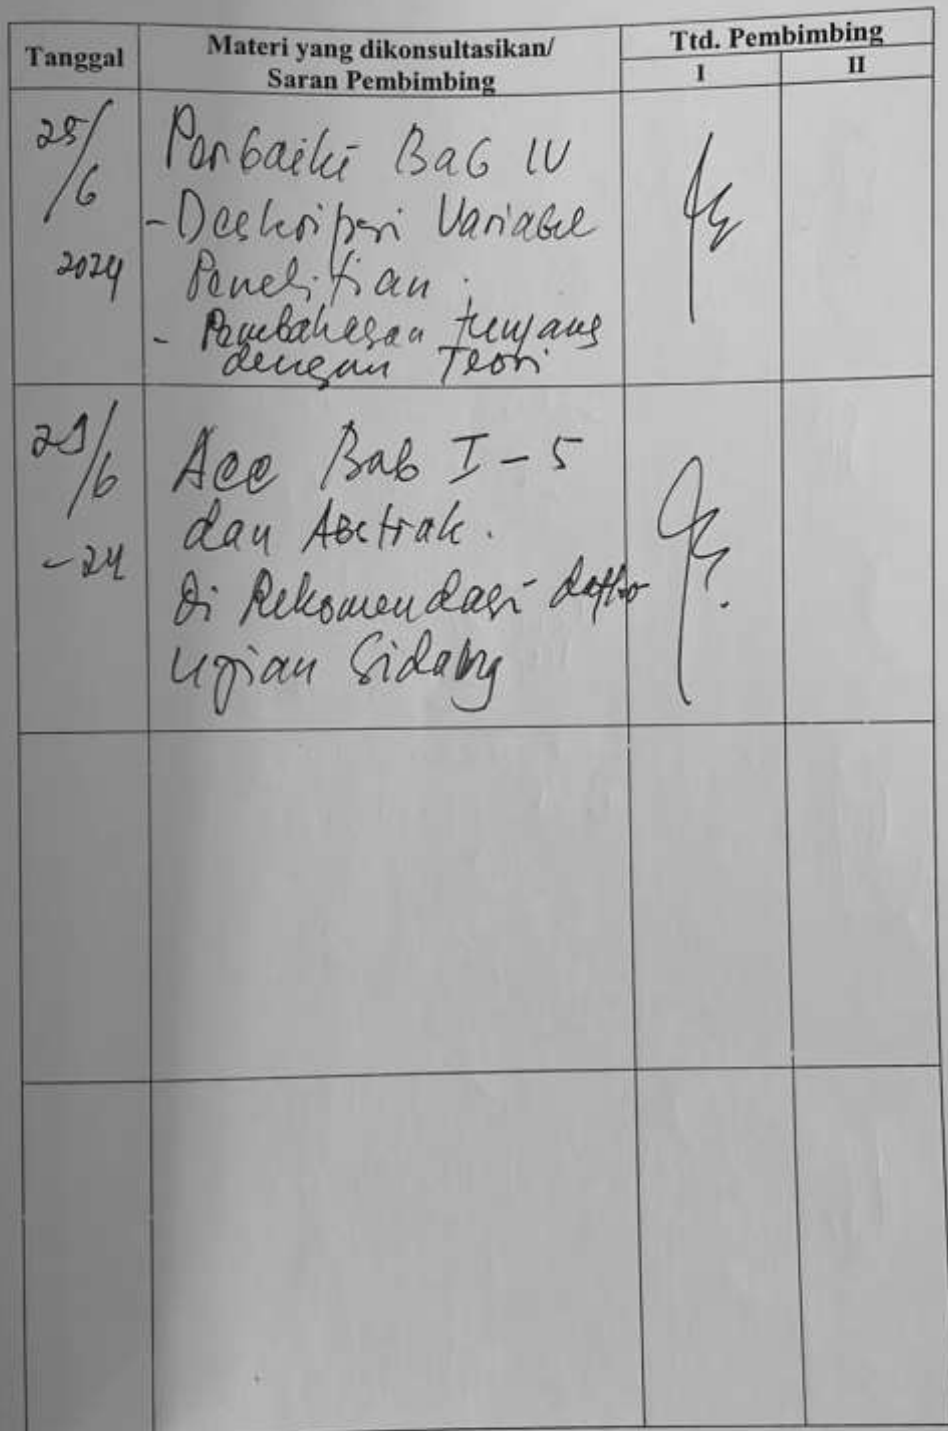 Tanggal
Materi yang dikonsultasikan/
Saran Pembimbing
Ttd. Pembimbing
I
II
25/6
2024
Perbaiki Bab IV
- Deskripsi Variabel
Penelitian.
- Pembahasan tunjang
dengan Teori
29/6
-24
Acc Bab I - 5
dan Abstrak.
Di Rekomendasi
Ujian Sidang